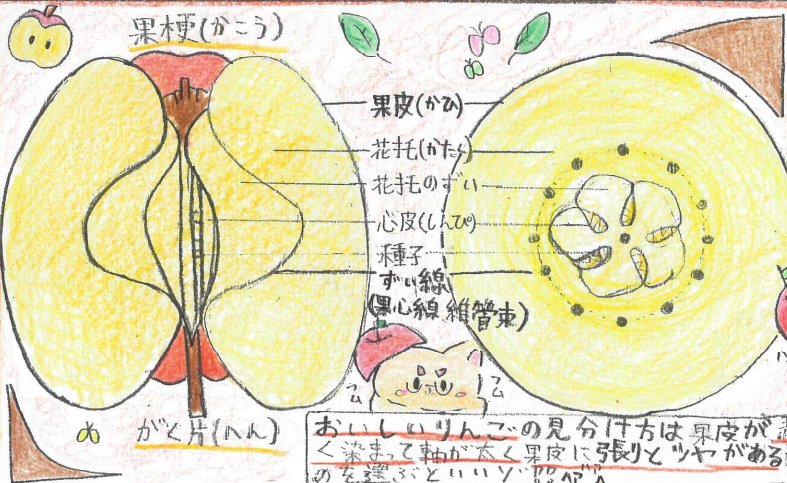 果梗(かこう)
果皮(かひ)
花托(かたく)
花托のずい
心皮(しんぴ)
種子
ずい線
(果心線 維管束)
がく片(へん)
フム
フム
おいしいりんごの見分け方は果皮が
く染まって軸が太く果皮に張りとツヤがある
のを選ぶといいゾ